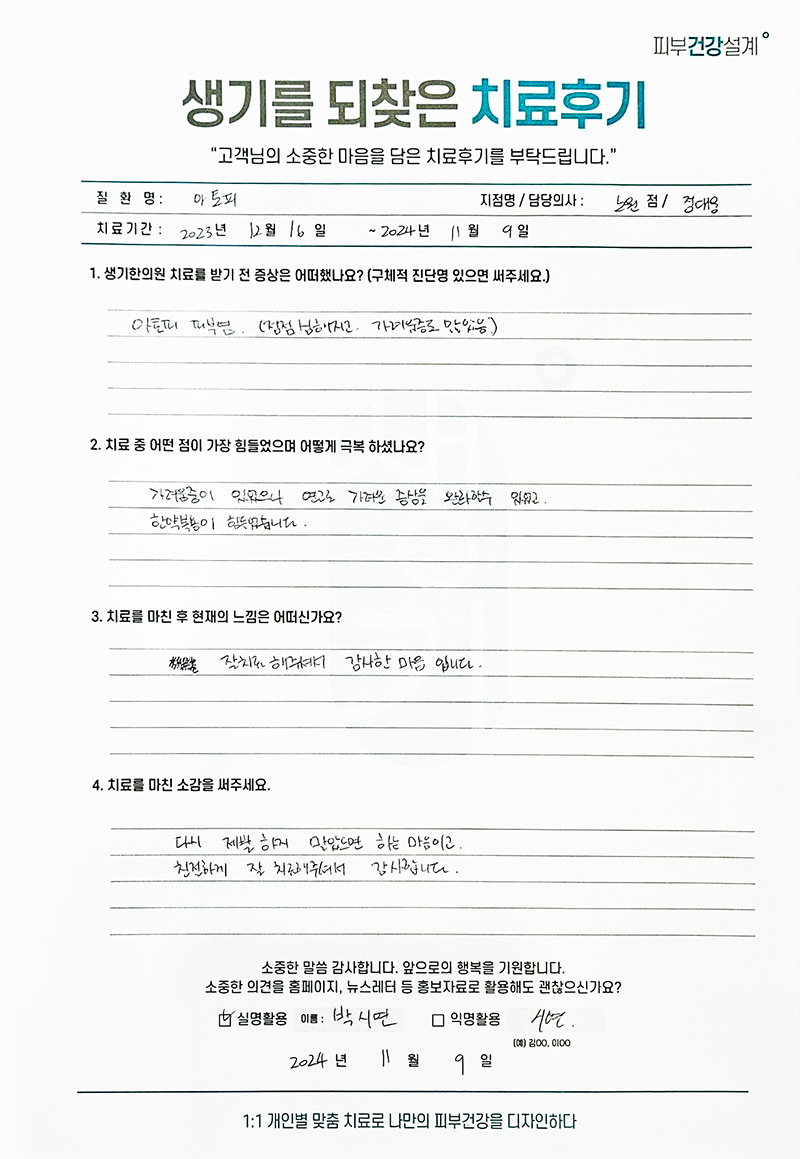 피부건강설계
생기를 되찾은 치료후기
“고객님의 소중한 마음을 담은 치료후기를 부탁드립니다.”
질 환 명 : 아토피 지점명 / 담당의사 : 노원 점 / 정대웅
치료기간 : 2023년 12월 16일 ~ 2024년 11월 9일
1. 생기한의원 치료를 받기 전 증상은 어떠했나요? (구체적 진단명 있으면 써주세요.)
아토피 피부염. (점점 심해지고. 가려움증도 많았음)
2. 치료 중 어떤 점이 가장 힘들었으며 어떻게 극복 하셨나요?
가려움증이 있었으나 연고로 가려운 증상을 완화할수 있었고.
한약복용이 힘듯었습니다.
3. 치료를 마친 후 현재의 느낌은 어떠신가요?
잘치료 해주셔서 감사한 마음 입니다.
4. 치료를 마친 소감을 써주세요.
다시 재발 하지 말았으면 하는 마음이고.
친절하게 잘 치료해주셔서 감사합니다.
소중한 말씀 감사합니다. 앞으로의 행복을 기원합니다.
소중한 의견을 홈페이지, 뉴스레터 등 홍보자료로 활용해도 괜찮으신가요?
실명활용 이름 : 박시연 익명활용 시연.
(예) 김00, 이00
2024년 11월 9일
1:1 개인별 맞춤 치료로 나만의 피부건강을 디자인하다